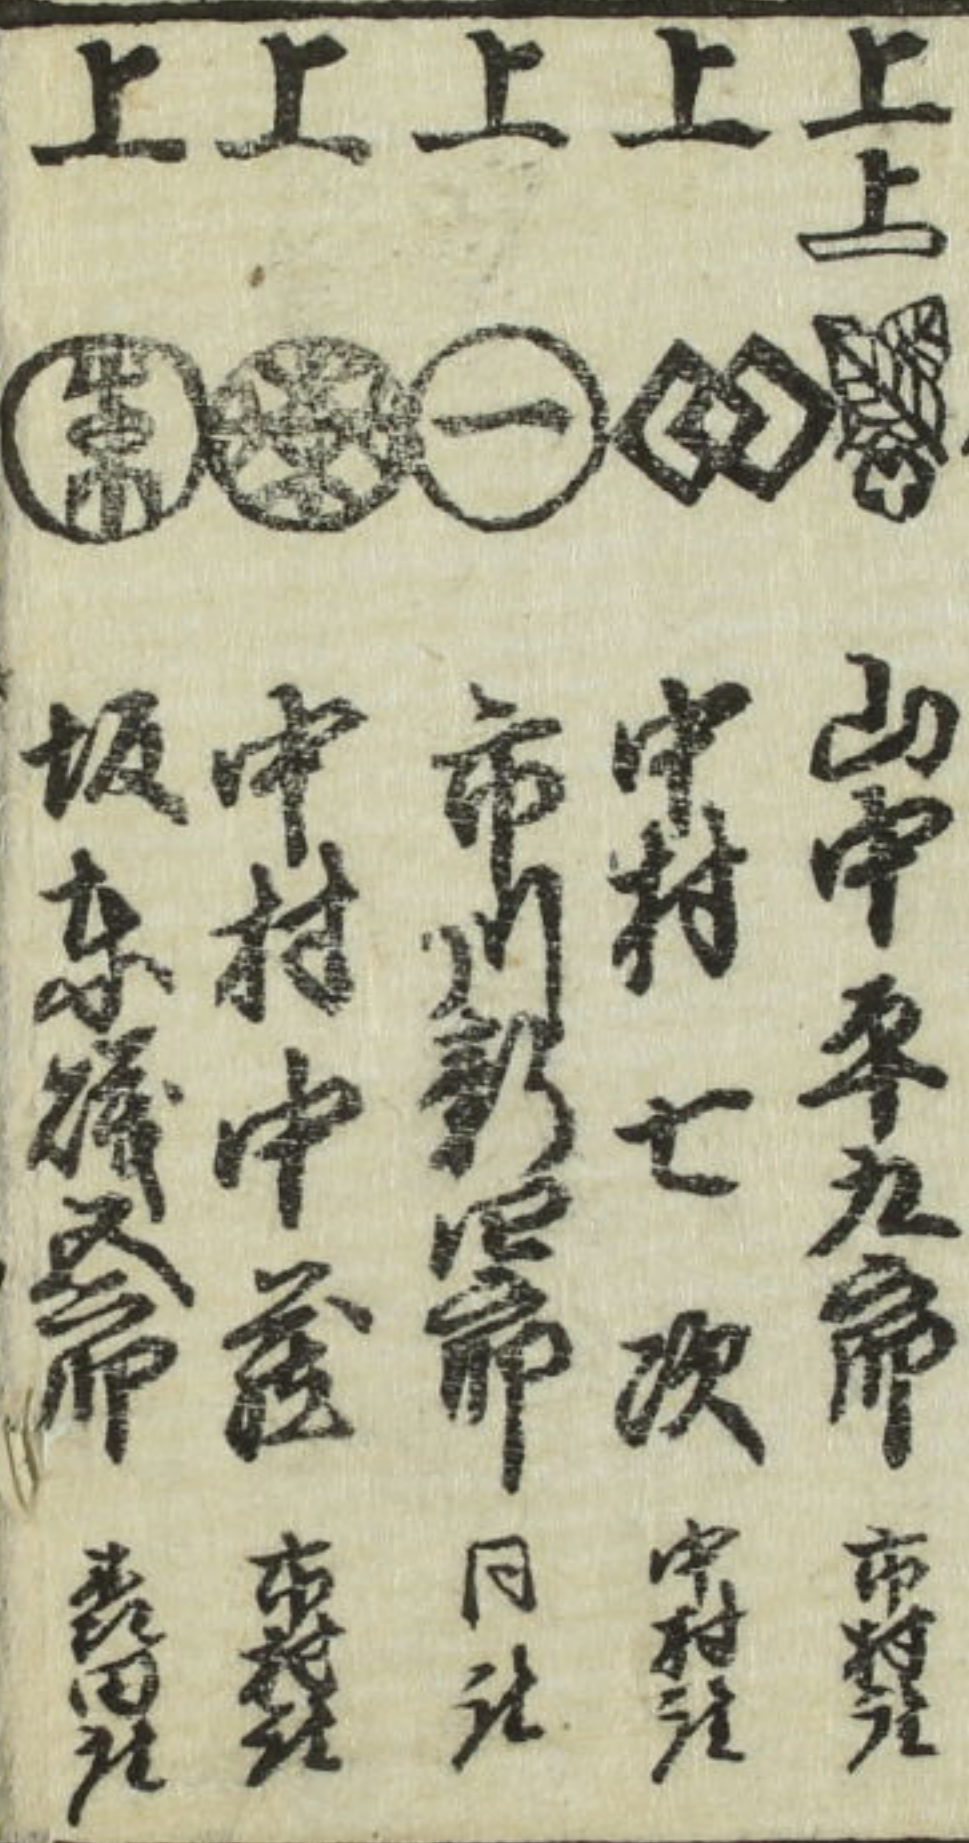 上上 山中平九郎 市村座
上 中村七次 中村座
上 一 市川新四郎 同座
上 中村中蔵 市村座
上 坂東礒五郎 森田座